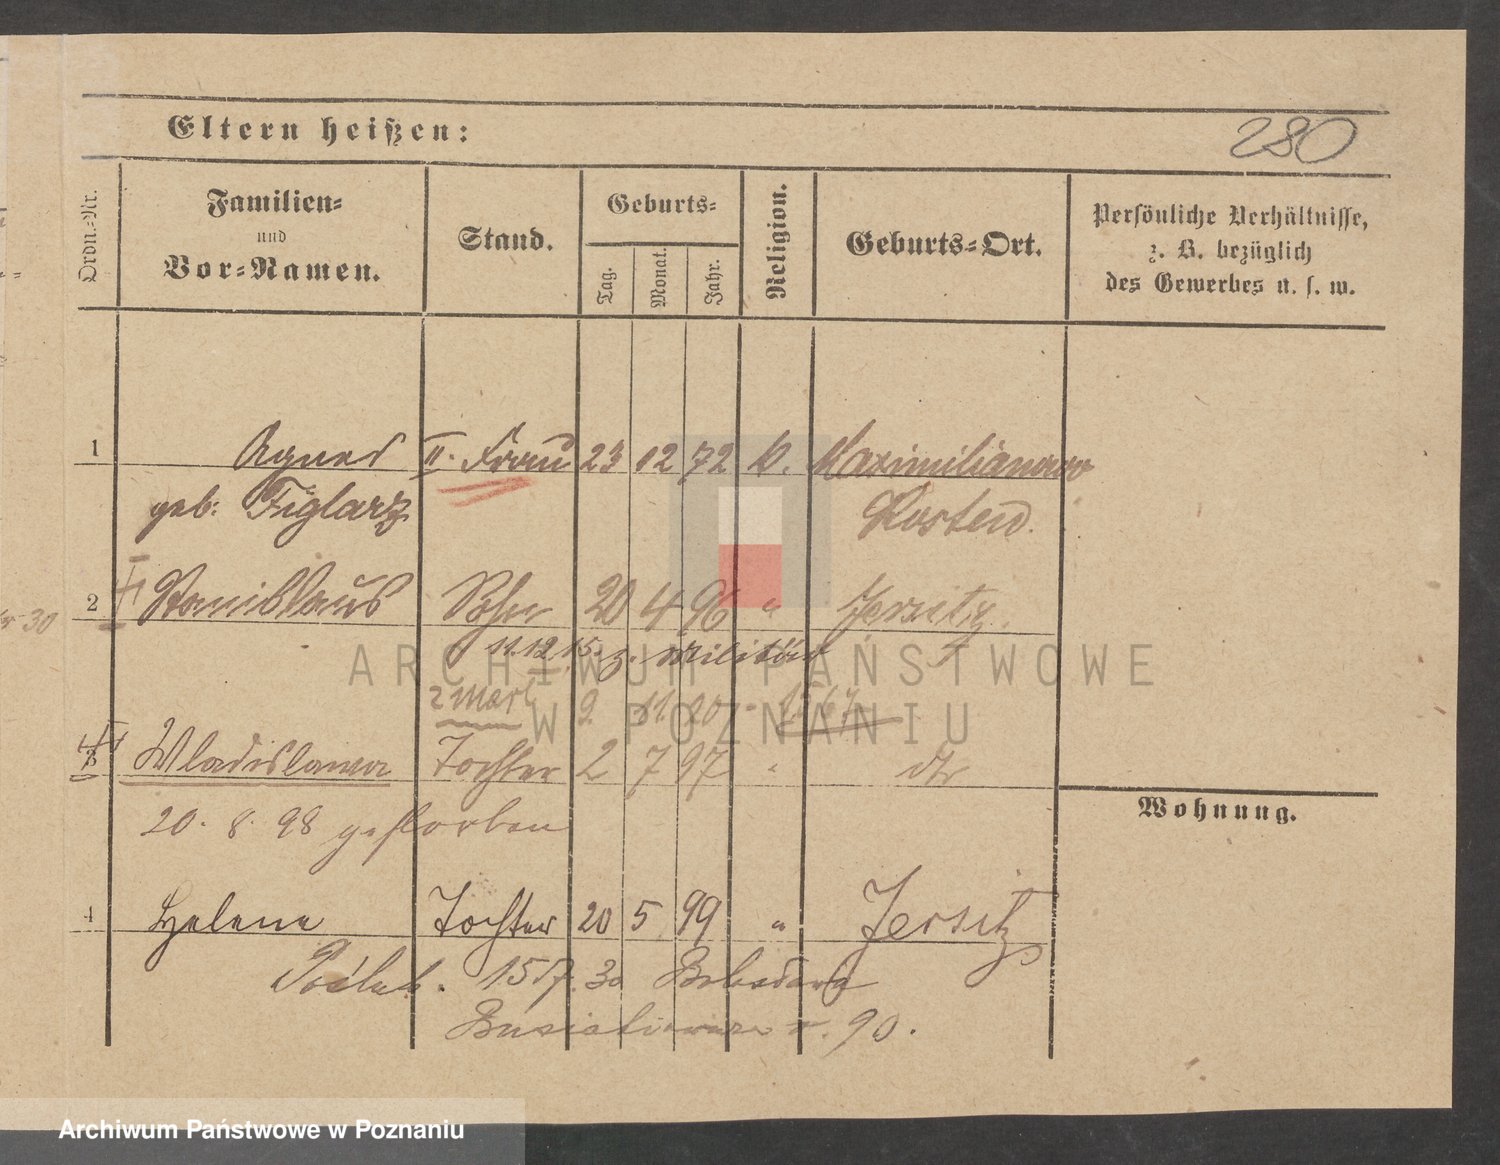 280
Eltern heißen:
Ordn.-Nr.
Familien-
und
Vor-Namen.
Stand.
Geburts-
Tag.
Monat.
Jahr.
Religion.
Geburts-Ort.
Persönliche Verhältnisse,
z. B. bezüglich
des Gewerbes u. s. w.
1 Agnes II. Frau 23 12 72 k. Maximilianowo
geb. Figlarz Kosten.
2 Stanislaus Sohn 20 4 96 " Jersitz
30
11.12.15. z. Militär
zmarł 2 11 20
3 Wladislawa Tochter 2 7 97 " dto
20. 8. 98 gestorben
Wohnung.
4 Helene Tochter 20 5 99 " Jersitz
90.
ARCHIWUM PAŃSTWOWE
W POZNANIU
Archiwum Państwowe w Poznaniu